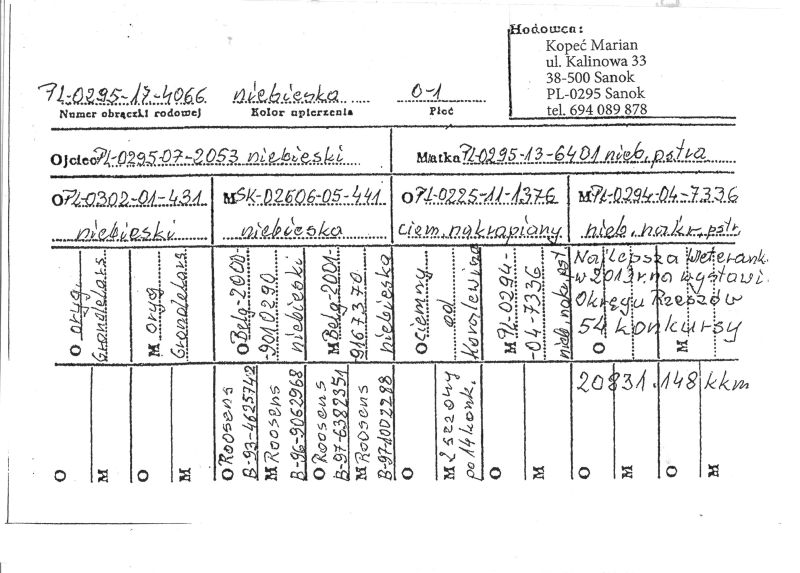 Hodowca:
Kopeć Marian
ul. Kalinowa 33
38-500 Sanok
PL-0295 Sanok
tel. 694 089 878
PL-0295-17-4066 niebieska 0-1
Numer obrączki rodowej Kolor upierzenia Płeć
Ojciec PL-0295-07-2053 niebieski
Matka PL-0295-13-6401 nieb. pstra
O PL-0302-01-431
niebieski
M SK-02606-05-441
niebieska
O PL-0225-11-1376
ciem. nakrapiany
M PL-0294-04-7336
nieb. nakr. pstr.
O oryg.
Grandelars
M oryg
Grandelars
O Belg-2000-
9010290
niebieski
M Belg-2001-
9167370
niebieska
O ciemny
od
Korolewicza
M PL-0294-
-04-7336
nieb. nakr. pst
Najlepsza weterank.
w 2013r. na wystawi.
Okręgu Rzeszów
54 konkursy
O M
20831.148 kkm
O
M
O
M
O Roosens
B-93-4625742
M Roosens
B-96-9062968
O Roosens
B-97-6382351
M Roosens
B-97-1002288
O
M 2 szzowy
po 14 konk.
O
M
O
M
O
M